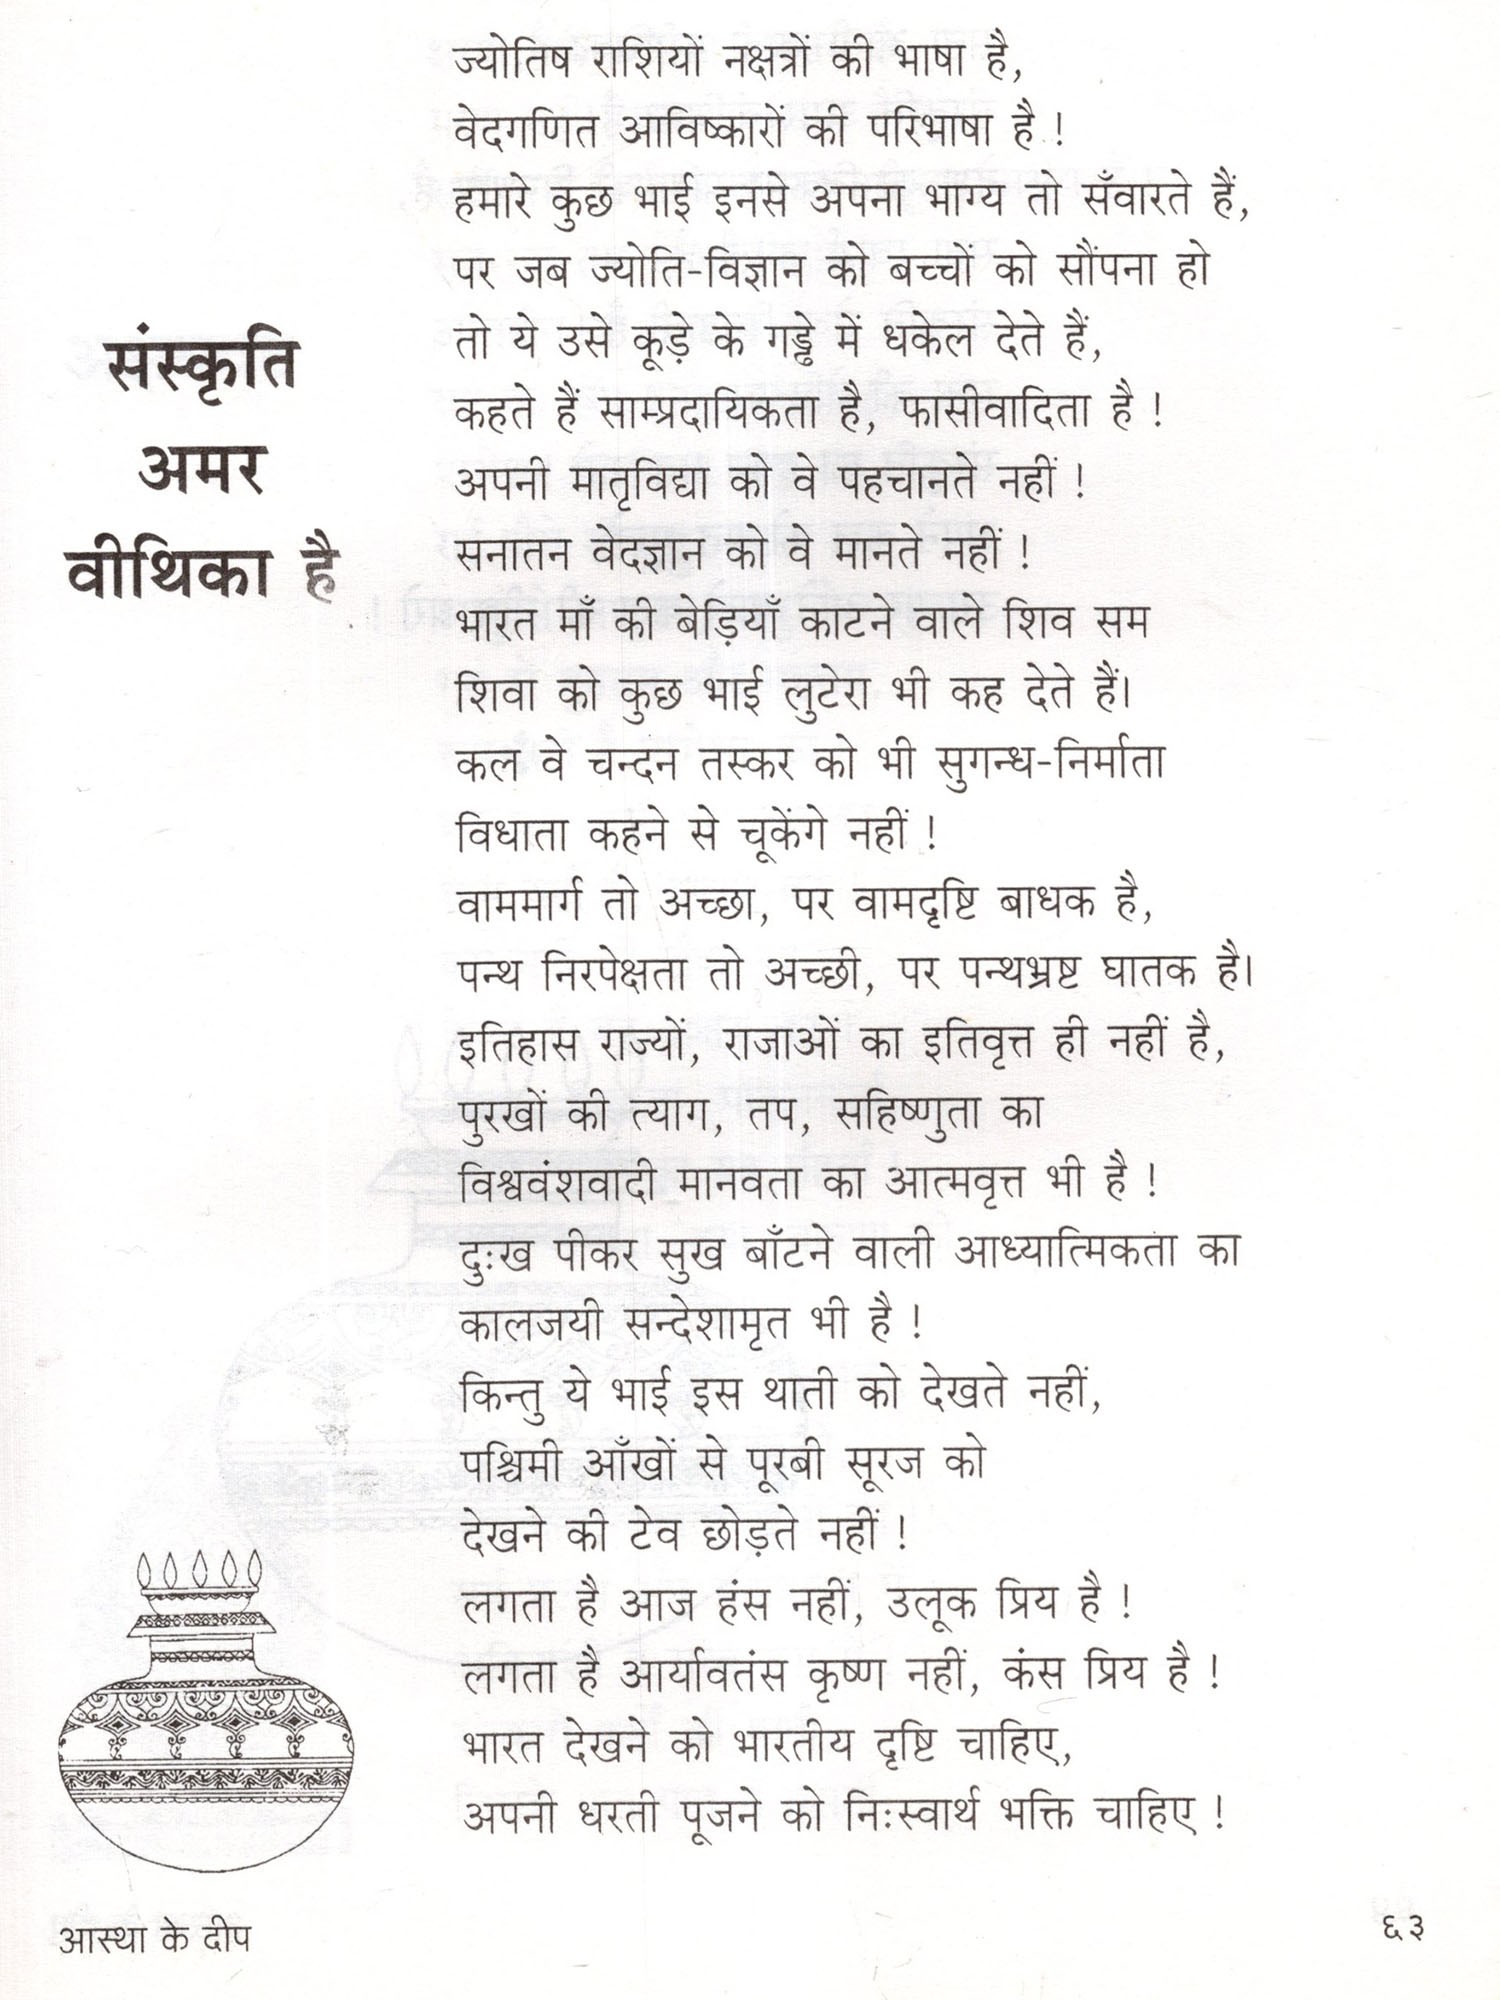 संस्कृति
अमर
वीथिका है
ज्योतिष राशियों नक्षत्रों की भाषा है,
वेदगणित आविष्कारों की परिभाषा है !
हमारे कुछ भाई इनसे अपना भाग्य तो सँवारते हैं,
पर जब ज्योति-विज्ञान को बच्चों को सौंपना हो
तो ये उसे कूड़े के गड्ढे में धकेल देते हैं,
कहते हैं साम्प्रदायिकता है, फासीवादिता है !
अपनी मातृविद्या को वे पहचानते नहीं !
सनातन वेदज्ञान को वे मानते नहीं !
भारत माँ की बेड़ियाँ काटने वाले शिव सम
शिवा को कुछ भाई लुटेरा भी कह देते हैं।
कल वे चन्दन तस्कर को भी सुगन्ध-निर्माता
विधाता कहने से चूकेंगे नहीं !
वाममार्ग तो अच्छा, पर वामदृष्टि बाधक है,
पन्थ निरपेक्षता तो अच्छी, पर पन्थभ्रष्ट घातक है।
इतिहास राज्यों, राजाओं का इतिवृत्त ही नहीं है,
पुरखों की त्याग, तप, सहिष्णुता का
विश्ववंशवादी मानवता का आत्मवृत्त भी है !
दुःख पीकर सुख बाँटने वाली आध्यात्मिकता का
कालजयी सन्देशामृत भी है !
किन्तु ये भाई इस थाती को देखते नहीं,
पश्चिमी आँखों से पूरबी सूरज को
देखने की टेव छोड़ते नहीं !
लगता है आज हंस नहीं, उलूक प्रिय है !
लगता है आर्यावतंस कृष्ण नहीं, कंस प्रिय है !
भारत देखने को भारतीय दृष्टि चाहिए,
अपनी धरती पूजने को निःस्वार्थ भक्ति चाहिए !
आस्था के दीप
६३